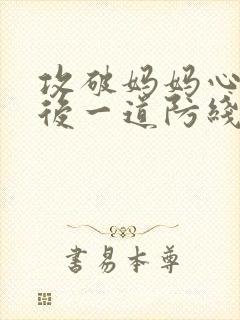 攻破妈妈心
後一道防綫
書易本尊